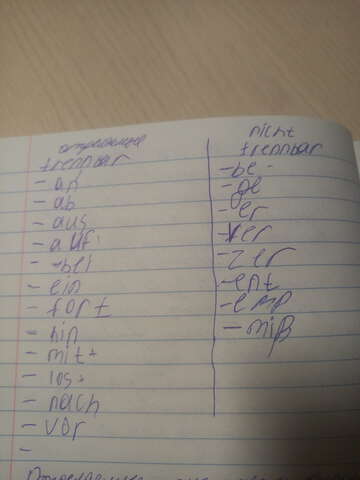 отделяемые
trennbar
- an
- ab
- aus
- auf
- bei
- ein
- fort
- hin
- mit
- los
- nach
- vor
-
nicht
trennbar
- be -
- ge
- er
- ver
- zer
- ent
- emp
- miß